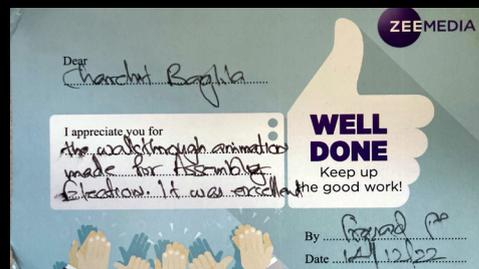 ZEEMEDIA
Dear
I appreciate you for
the walkthrough animation
made for Assembly
Election. It was excellent
WELL
DONE
Keep up
the good work!
By
Date 14/12/22